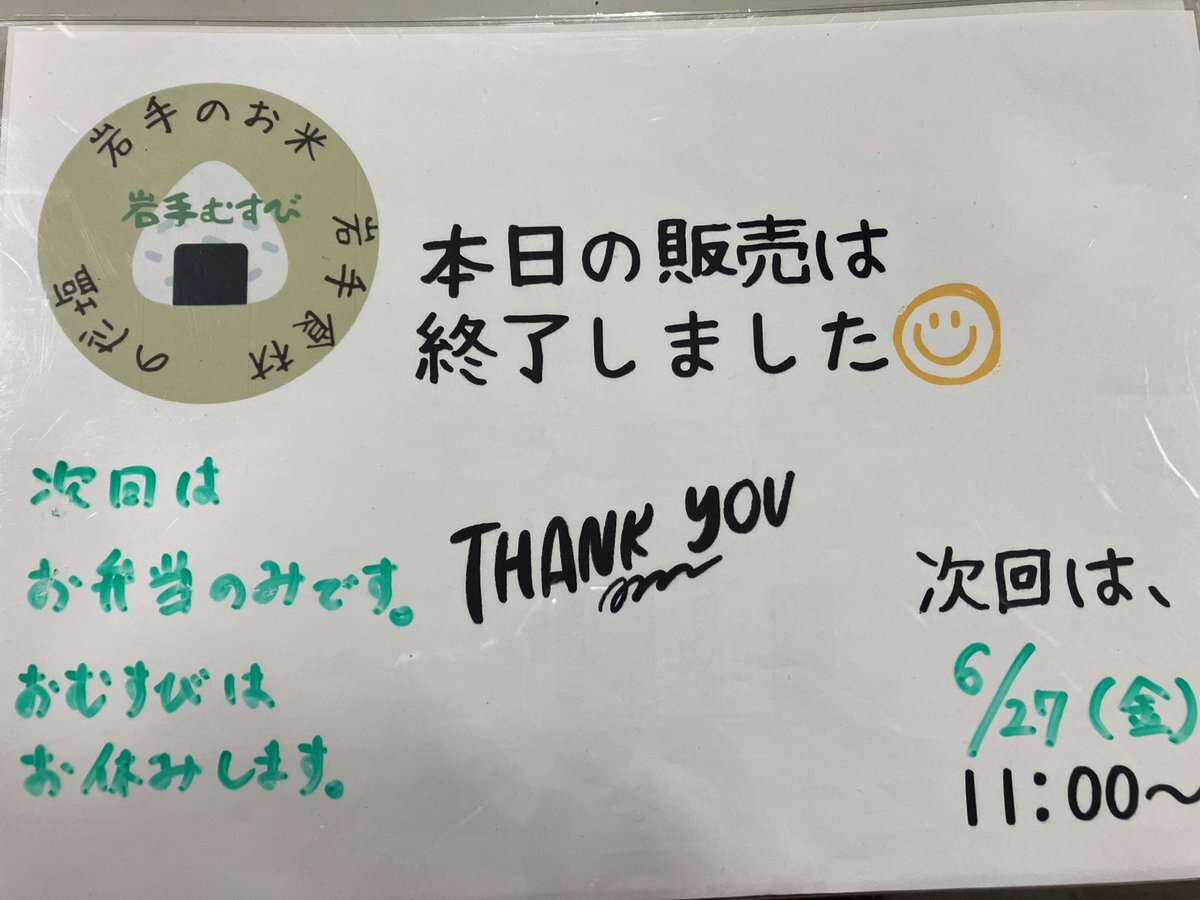 岩手のお米
岩手県秋
のだ塩
岩手むすび
本日の販売は
終了しました
次回は
お弁当のみです。
おむすびは
お休みします。
THANK YOU
次回は、
6/27(金)
11:00～